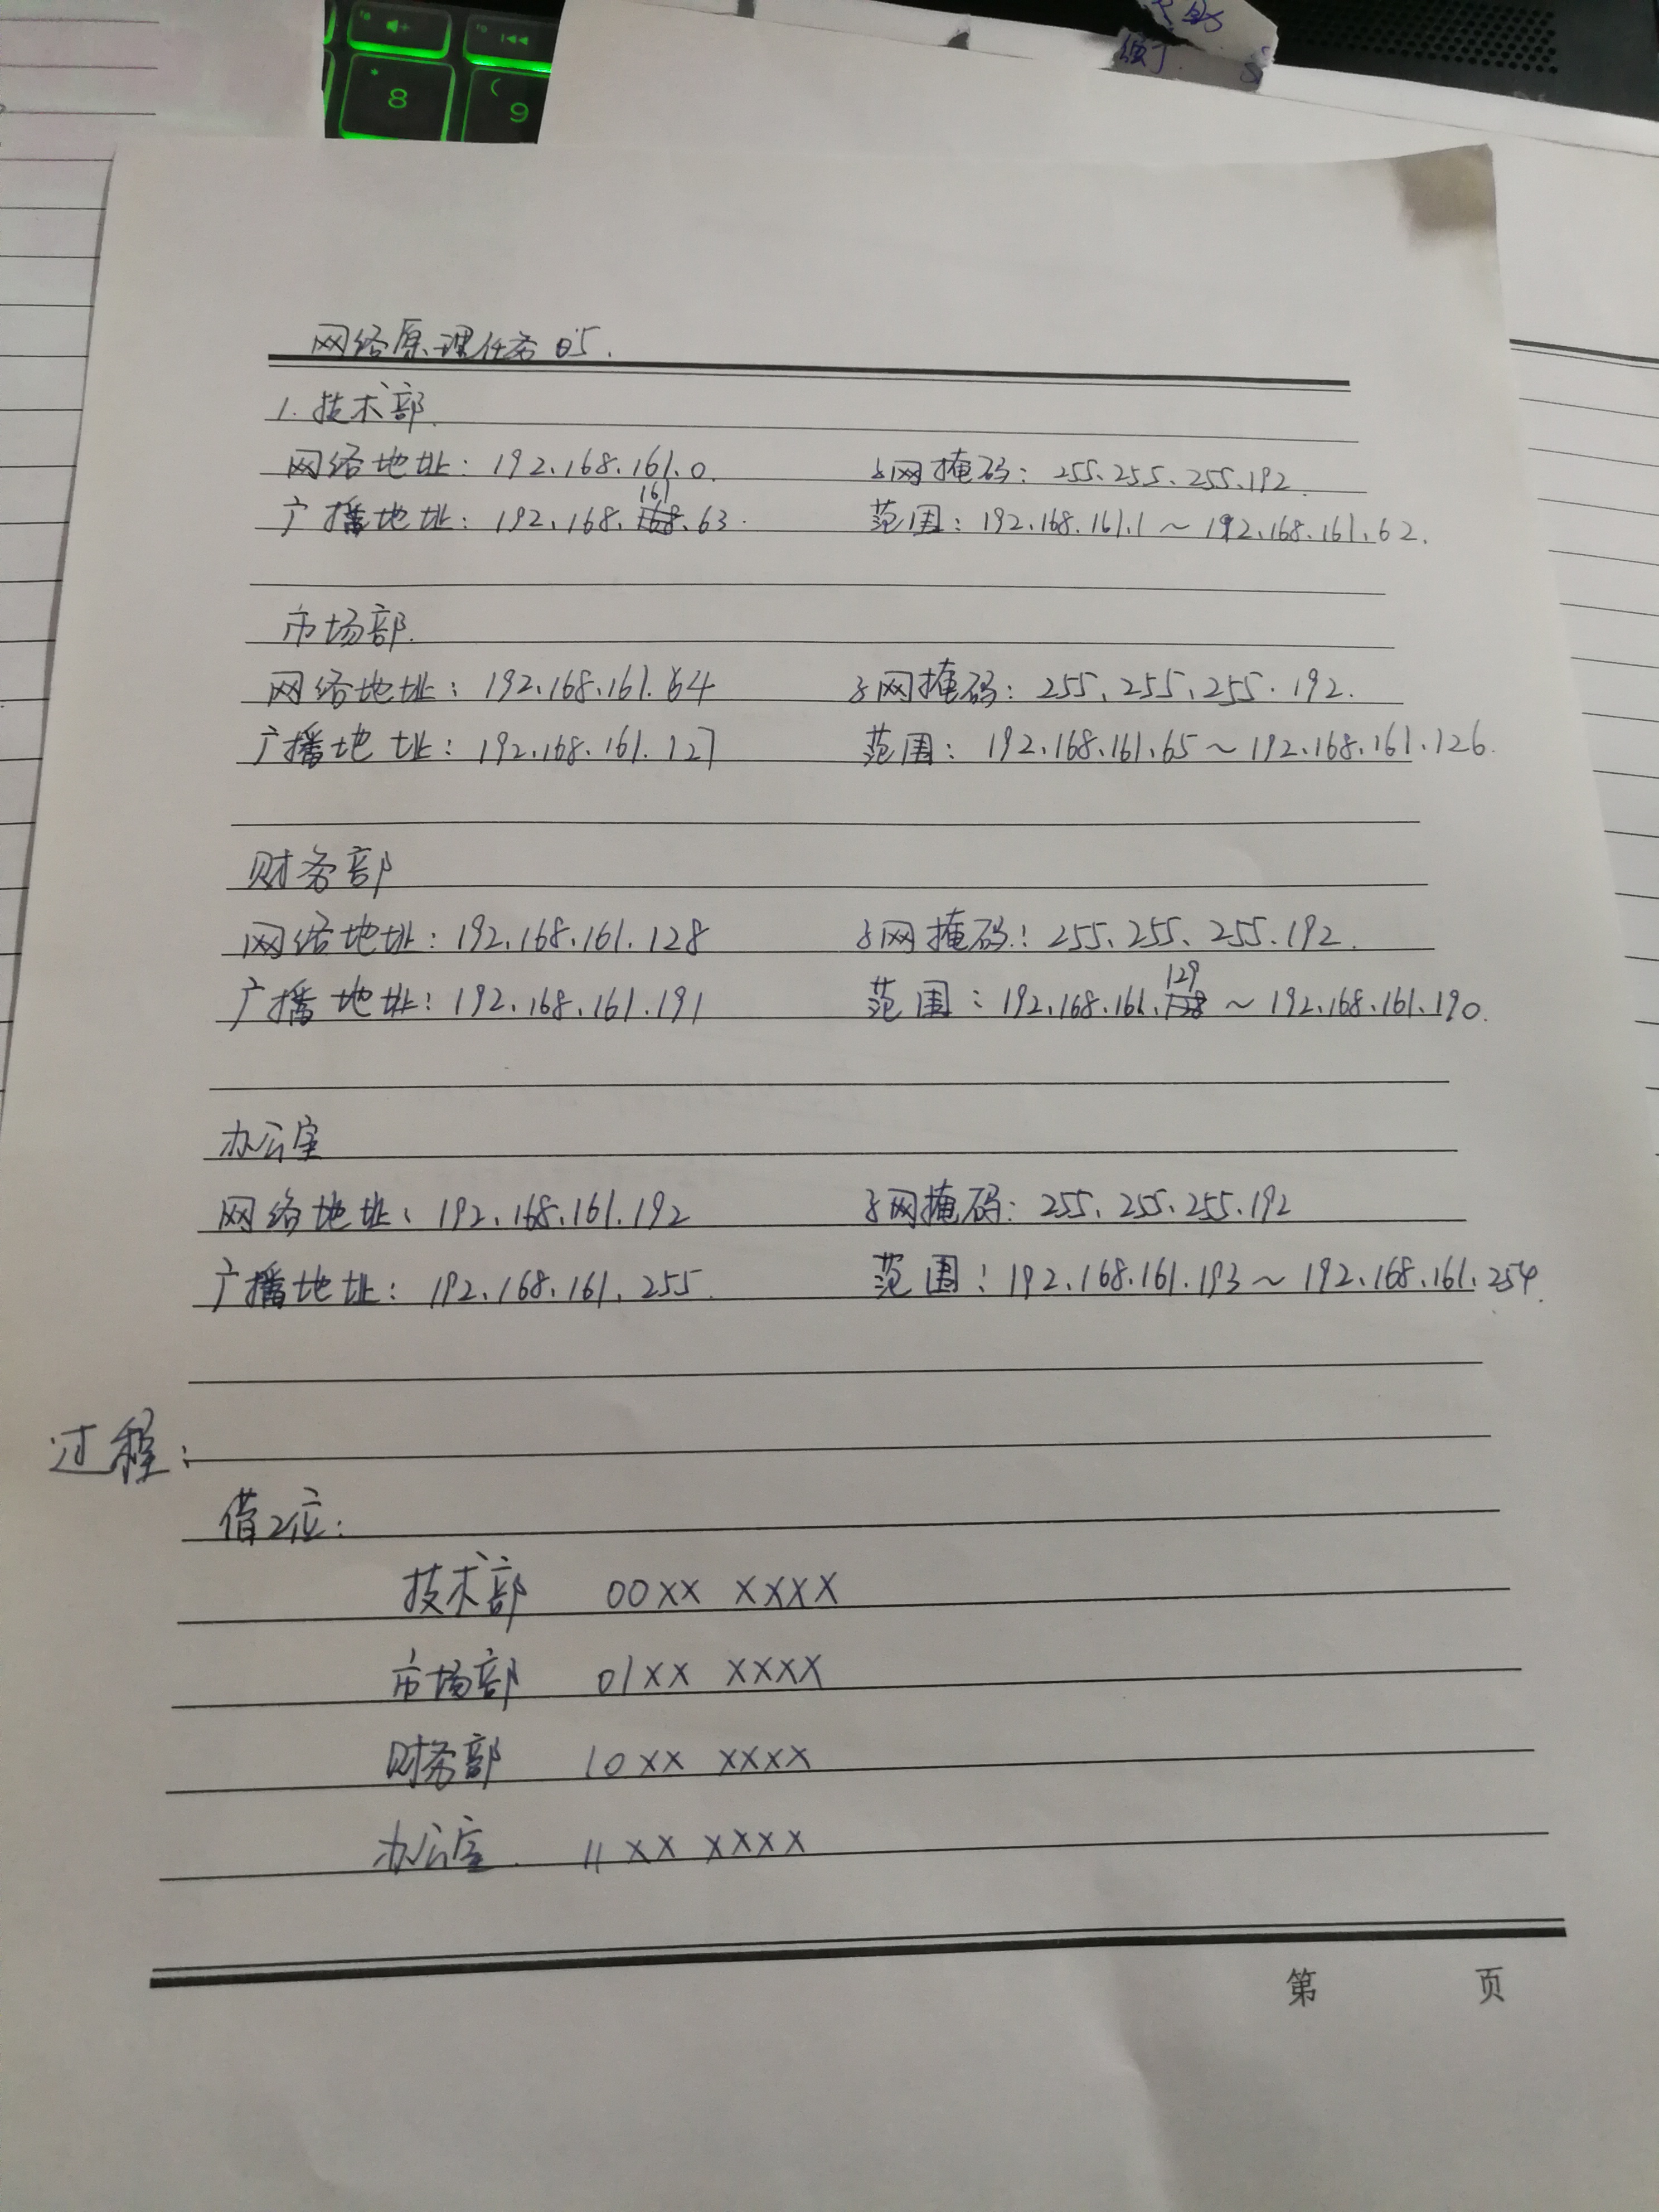 8
( 9
网络原理任务05.
1. 技术部.
网络地址: 192.168.161.0. 子网掩码: 255.255.255.192.
161
广播地址: 192.168.168.63. 范围: 192.168.161.1 ~ 192.168.161.62.
市场部.
网络地址: 192.168.161.64 子网掩码: 255.255.255.192.
广播地址: 192.168.161.127 范围: 192.168.161.65 ~ 192.168.161.126.
财务部
网络地址: 192.168.161.128 子网掩码: 255.255.255.192.
129
广播地址: 192.168.161.191 范围: 192.168.161.128 ~ 192.168.161.190.
办公室
网络地址: 192.168.161.192 子网掩码: 255.255.255.192
广播地址: 192.168.161.255. 范围: 192.168.161.193 ~ 192.168.161.254.
过程:
借2位:
技术部 00XX XXXX
市场部 01XX XXXX
财务部 10XX XXXX
办公室. 11XX XXXX
第 页